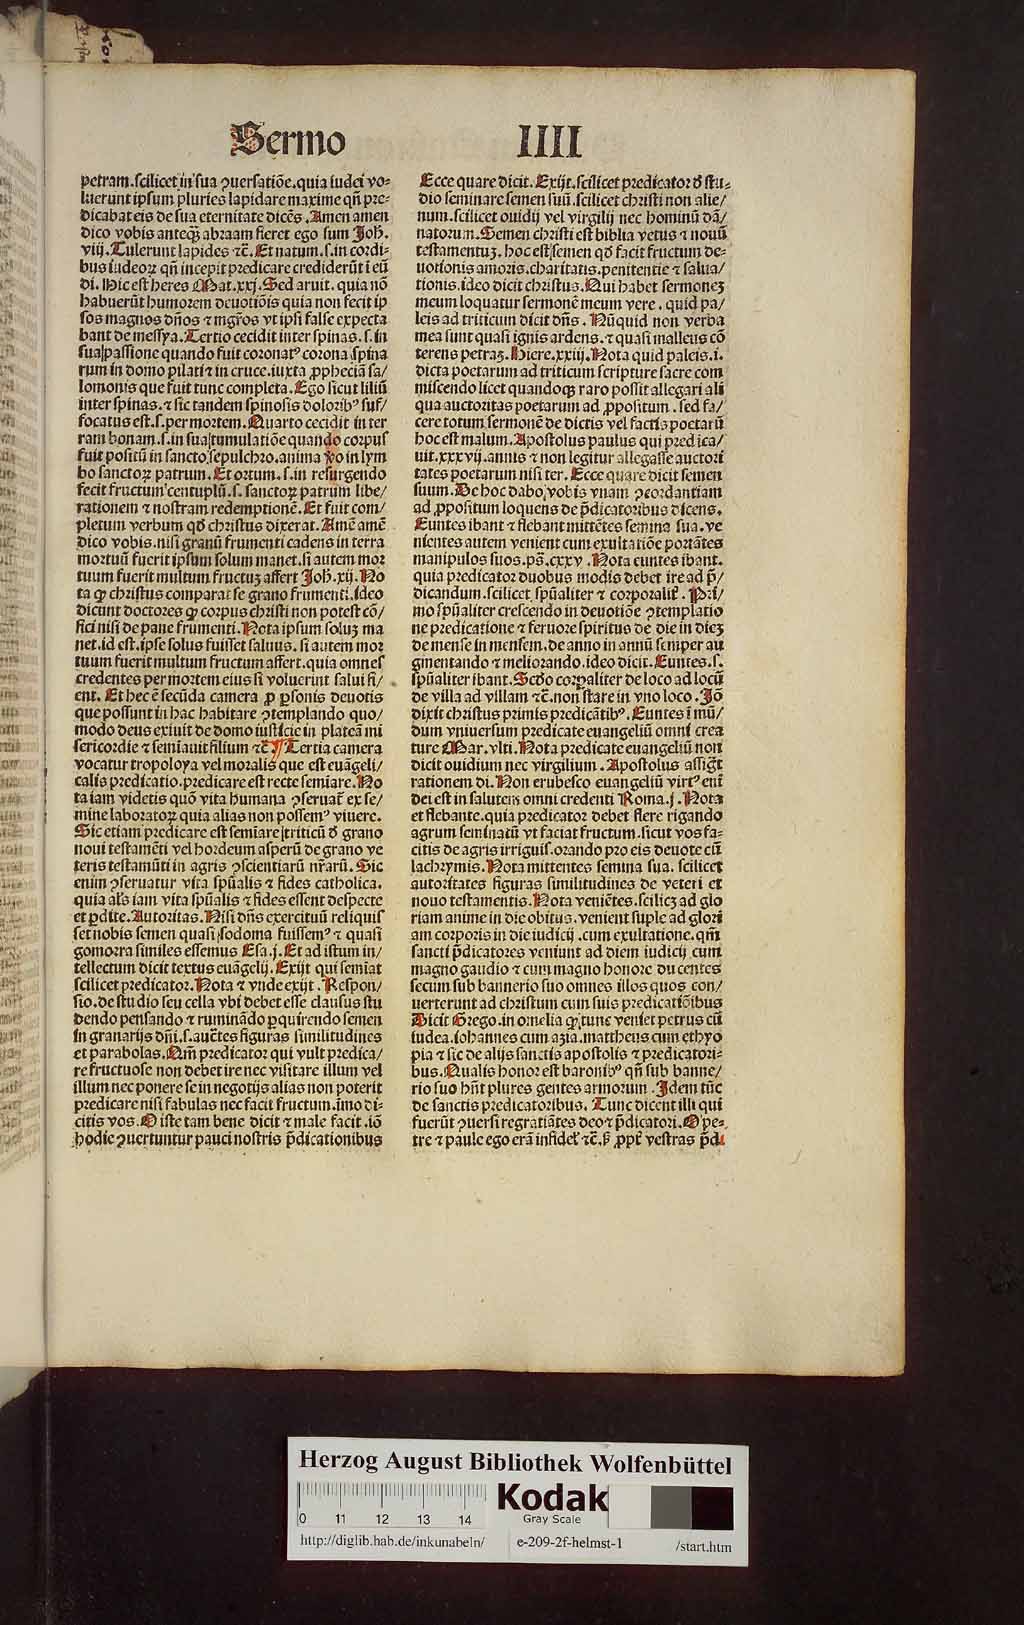 Sermo IIII
petram.scilicet in sua ꝯuersatiōe.quia iudei vo-
luerunt ipsum pluries lapidare maxime qñ pre-
dicabat eis de sua eternitate dicēs.Amen amen
dico vobis anteq̄ꝫ abraam fieret ego sum Joh̄.
viij.Tulerunt lapides ⁊c̄.Et natum.s.in cordi-
bus iudeoꝝ qñ incepit predicare crediderūt i eū
di.Hic est heres Mat.xxj.Sed aruit.quia nō
habuerūt humorem deuotiōis quia non fecit ip
sos magnos dños ⁊ mgr̄os vt ipsi false expecta
bant de messya.Tertio cecidit inter spinas.s.in
sua passione quando fuit coronatꝰ corona spina
rum in domo pilati ⁊ in cruce.iuxta ꝓpheciā sa/
lomonis que fuit tunc completa.Ego sicut liliū
inter spinas.⁊ sic tandem spinosis doloribꝰ suf/
focatus est.s.per mortem.Quarto cecidit in ter
ram bonam.s.in sua tumulatiōe quando corpus
fuit positū in sancto sepulchro.anima v̄o in lym
bo sanctoꝝ patrum.Et ortum.s.in resurgendo
fecit fructum centuplū.s.sanctoꝝ patrum libe/
rationem ⁊ nostram redemptionē.Et fuit com/
pletum verbum qd̄ christus dixerat.Amē amē
dico vobis.nisi granū frumenti cadens in terra
mortuū fuerit ipsum solum manet.si autem mor
tuum fuerit multum fructuꝫ affert Joh̄.xij.No
ta ꝙ christus comparat se grano frumenti.ideo
dicunt doctores ꝙ corpus christi non potest cō/
fici nisi de pane frumenti.Nota ipsum soluꝫ ma
net.id est.ipse solus fuisset saluus.si autem mor
tuum fuerit multum fructum affert.quia omnes
credentes per mortem eius si voluerint salui fi/
ent.Et hec ē secūda camera ꝓ ꝑsonis deuotis
que possunt in hac habitare ꝯtemplando quo/
modo deus exiuit de domo iusticie in plateā mi
sericordie ⁊ semiauit filium ⁊c̄ ¶ Tertia camera
vocatur tropoloya vel moralis que est euāgeli/
calis predicatio.predicare est recte semiare.No
ta iam videtis quō vita humana ꝯseruat̄ ex se/
mine laboratoꝝ quia alias non possemꝰ viuere.
Sic etiam predicare est semiare triticū d̄ grano
noui testamēti vel hordeum asperū de grano ve
teris testamūti in agris ꝯscientiarū nr̄arū.Sic
enim ꝯseruatur vita sp̄ualis ⁊ fides catholica.
quia al̄s iam vita sp̄ualis ⁊ fides essent despecte
et ꝑdite.Autoritas.Nisi dñs exercituū reliquis
set nobis semen quasi sodoma fuissemꝰ ⁊ quasi
gomorra similes essemus Esa.j.Et ad istum in/
tellectum dicit textus euāgelij.Exijt qui semiat
scilicet predicator.Nota ⁊ vnde exijt.Respon/
sio.de studio seu cella vbi debet esse clausus stu
dendo pensando ⁊ ruminādo ꝑquirendo semen
in granarijs dñi.s.auctes figuras similitudines
et parabolas.Nā predicator qui vult predica/
re fructuose non debet ire nec visitare illum vel
illum nec ponere se in negotijs alias non poterit
predicare nisi fabulas nec facit fructum.imo di-
citis vos.O iste tam bene dicit ⁊ male facit.iō
hodie ꝯuertuntur pauci nostris p̄dicationibus
Ecce quare dicit.Exijt.scilicet predicator d̄ stu-
dio seminare semen suū.scilicet christi non alie/
num.scilicet ouidij vel virgilij nec hominū dā/
natorum.Semen christi est biblia vetus ⁊ nouū
testamentuꝫ.hoc est semen qd̄ facit fructum de-
uotionis amoris.charitatis.penitentie ⁊ salua/
tionis.ideo dicit christus.Qui habet sermoneꝫ
meum loquatur sermonē meum vere.quid pa/
leis ad triticum dicit dñs.Nūquid non verba
mea sunt quasi ignis ardens.⁊ quasi malleus cō
terens petraꝫ.Hiere.xxiij.Nota quid paleis.i.
dicta poetarum ad triticum scripture sacre com
miscendo licet quandoqꝫ raro possit allegari ali
qua auctoritas poetarum ad ꝓpositum.sed fa/
cere totum sermonē de dictis vel factis poetarū
hoc est malum.Apostolus paulus qui predica/
uit.xxxvij.annis ⁊ non legitur allegasse auctori
tates poetarum nisi ter.Ecce quare dicit semen
suum.De hoc dabo vobis vnam ꝯcordantiam
ad ꝓpositum loquens de p̄dicatoribus dicens.
Euntes ibant ⁊ flebant mittētes semina sua.ve
nientes autem venient cum exultatiōe portātes
manipulos suos.ps̄.cxxv.Nota euntes ibant.
quia predicator duobus modis debet ire ad p̄/
dicandum.scilicet sp̄ualiter ⁊ corporalit̄.Pri/
mo sp̄ualiter crescendo in deuotiōe ꝯtemplatio
ne predicatione ⁊ feruore spiritus de die in dieꝫ
de mense in mensem.de anno in annū semper au
gmentando ⁊ meliorando.ideo dicit.Euntes.s.
sp̄ualiter ibant.Scd̄o corꝑaliter de loco ad locū
de villa ad villam ⁊c̄.non stare in vno loco.Iō
dixit christus primis predicātibꝰ.Euntes i mū/
dum vniuersum predicate euangeliū omni crea
ture Mar.vlti.Nota predicate euangeliū non
dicit ouidium nec virgilium.Apostolus assigt̄
rationem di.Non erubesco euangeliū virtꝰ enī
dei est in salutem omni credenti Roma.j.Nota
et flebante.quia predicator debet flere rigando
agrum seminatū vt faciat fructum.sicut vos fa-
citis de agris irriguis.orando pro eis deuote cū
lachrymis.Nota mittentes semina sua.scilicet
autoritates figuras similitudines de veteri et
nouo testamentis.Nota veniētes.scilicꝫ ad glo
riam anime in die obitus.venient suple ad glori
am corporis in die iudicij.cum exultatione.qm̄
sancti p̄dicatores veniunt ad diem iudicij cum
magno gaudio ⁊ cum magno honore ducentes
secum sub bannerio suo omnes illos quos con/
uerterunt ad christum cum suis predicatiōibus
Dicit Grego.in omelia ꝙ tunc veniet petrus cū
iudea.iohannes cum azia.mattheus cum ethyo
pia ⁊ sic de alijs sanctis apostolis ⁊ predicatori-
bus.Qualis honor est baronibꝰ qñ sub banne/
rio suo hñt plures gentes armorum.Idem tūc
de sanctis predicatoribus.Tunc dicent illi qui
fuerūt ꝯuersi regratiātes deo ⁊ p̄dicatori.O pe-
tre ⁊ paule ego erā infidel̄ ⁊c̄.ꝫ ꝓpt̄ vestras p̄di
Herzog August Bibliothek Wolfenbüttel
0 11 12 13 14
Kodak
Gray Scale
http://diglib.hab.de/inkunabeln/ e-209-2f-helmst-1 /start.htm